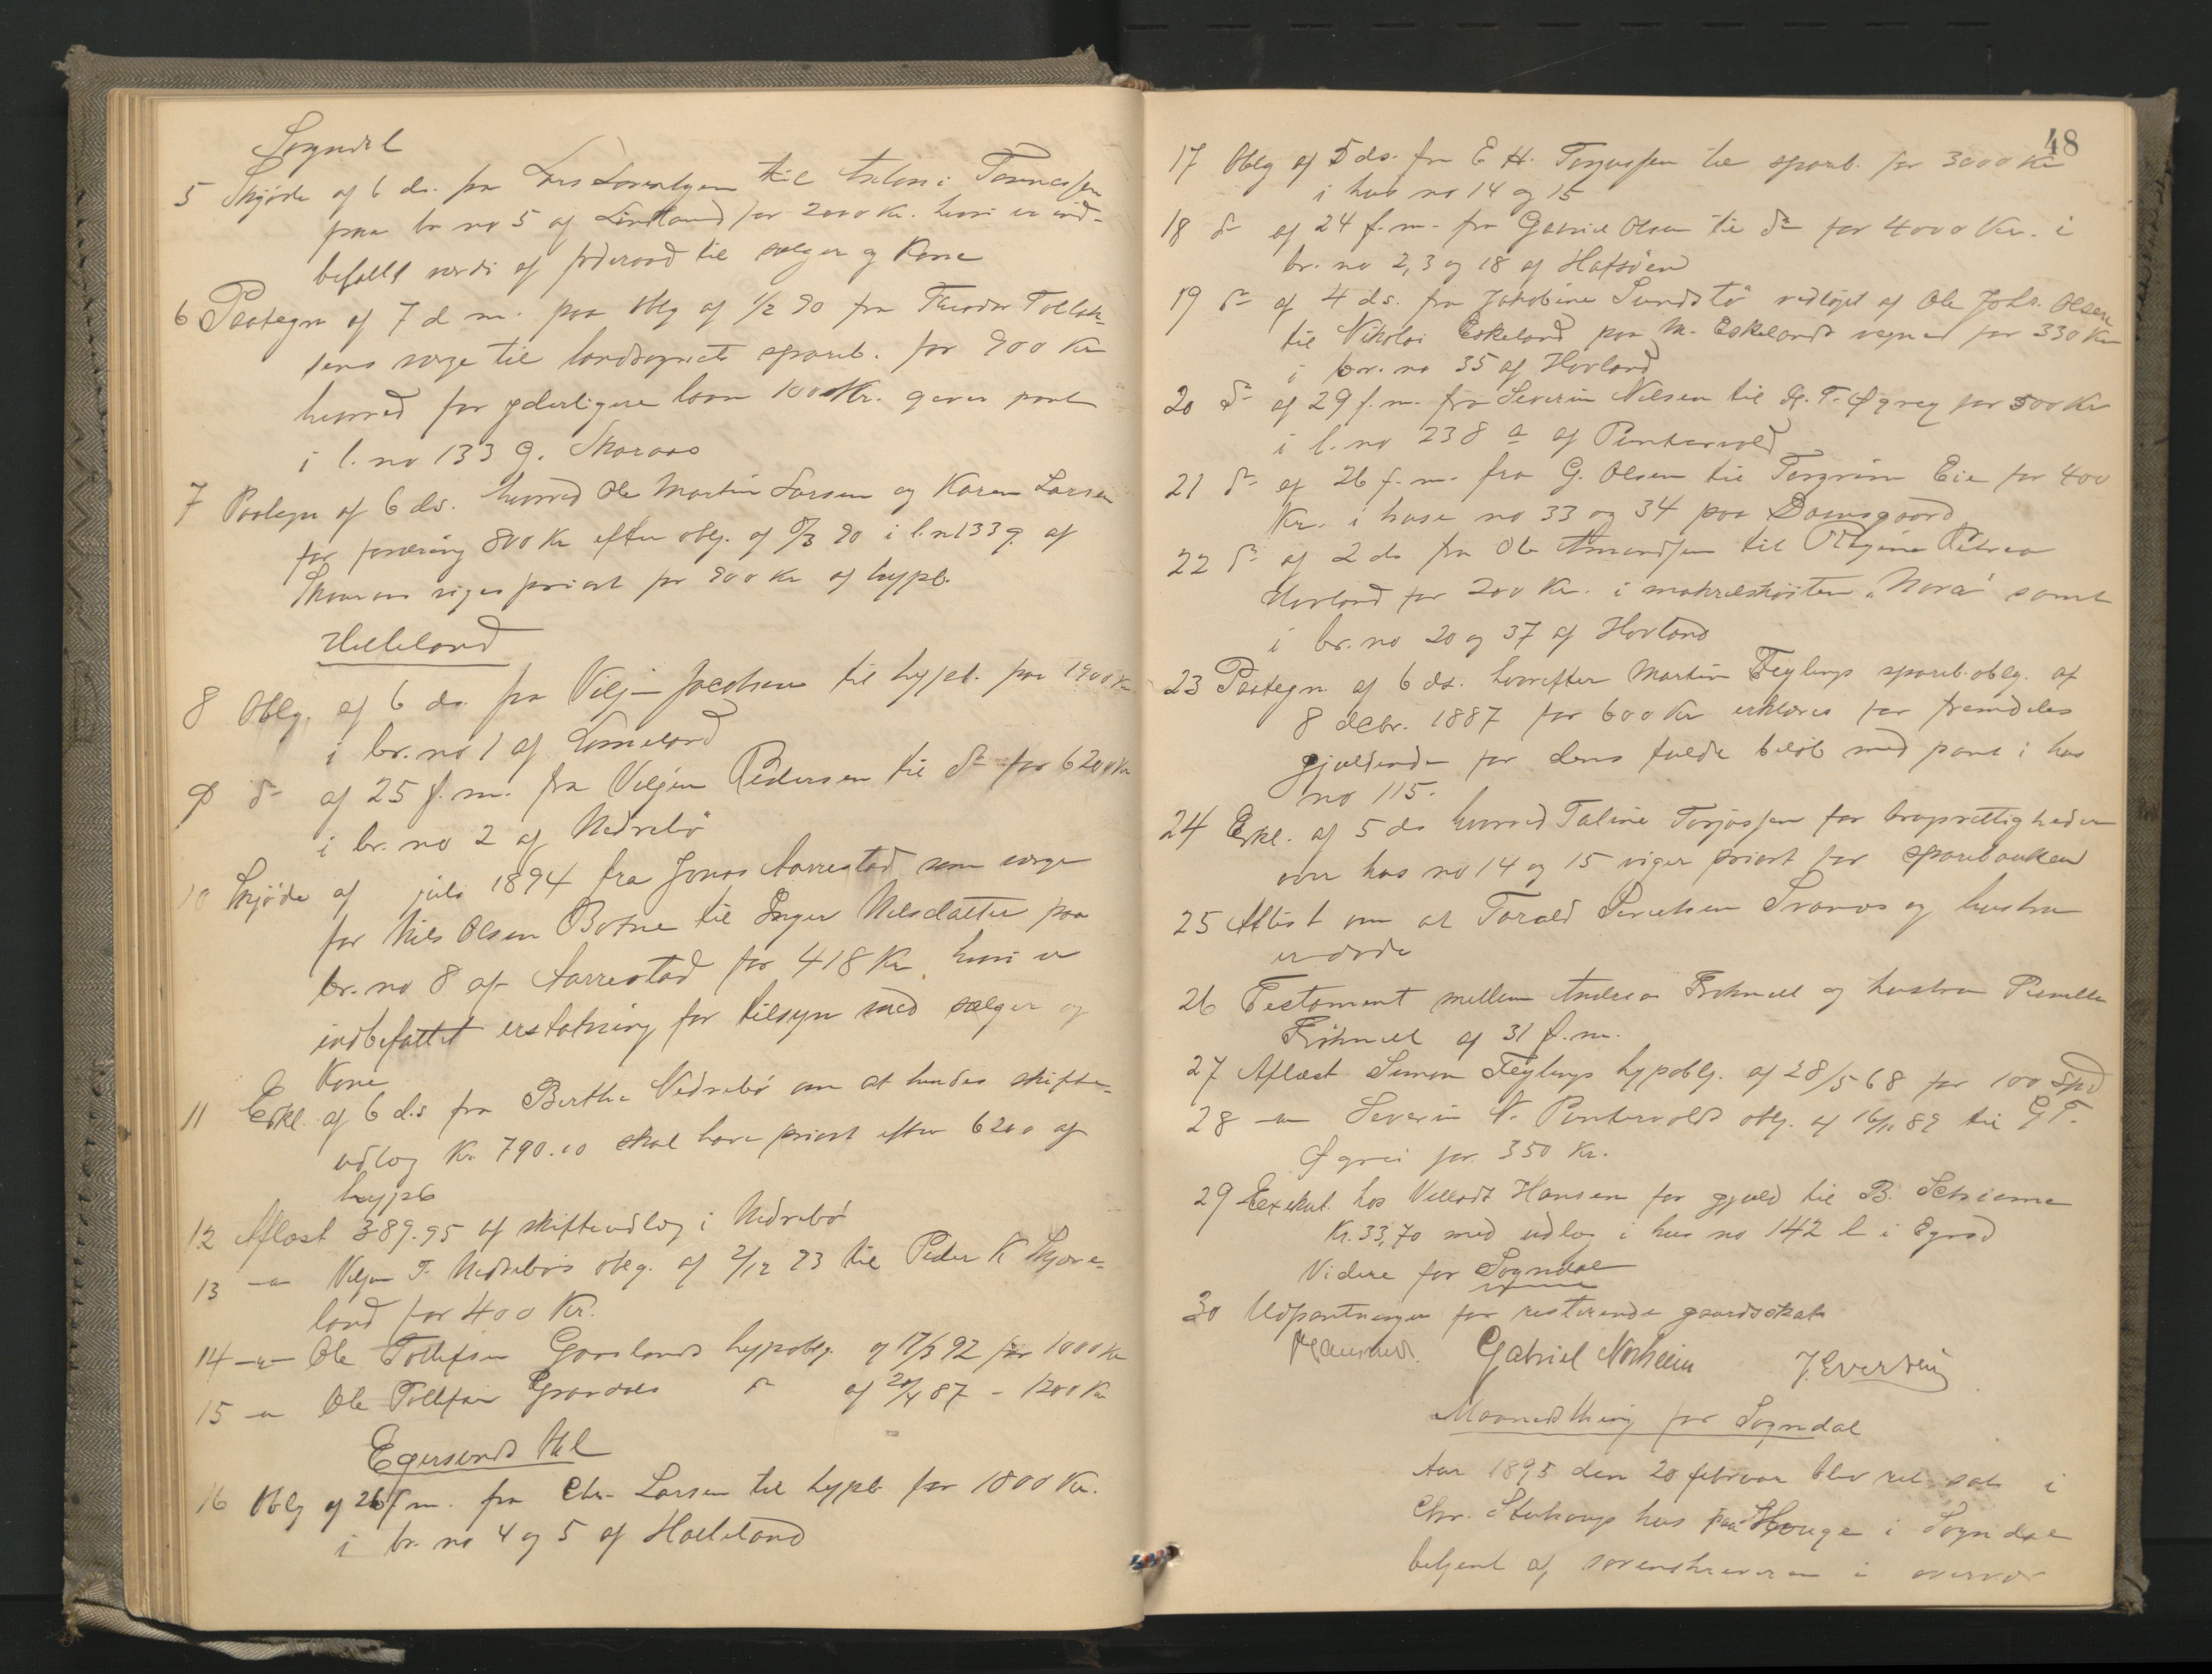 Sogndal
5 Skjøde af 6 ds. fra Lars Larsen til Tønnessen
paa br no 5 af Lindland for 2000 Kr. hvori er ind-
befattet værdi af föderaad til sælger og Kone
6 Paategn af 7 d m. paa oblg af 1/2 90 fra Theodor Tollak-
sens verge til landsognets spareb. for 900 Kr
hvorved for yderligere laan 1000 Kr. gives pant
i l. no 133 g. Skaraas
7 Paategn af 6 ds. hvorved Ole Martin Larsen og Karen Larsen
for fordring 800 Kr efter oblg. af 8/3 90 i l.n 133 g af
Skaraas viger priorit for 900 Kr af hypb.
Helleland
8 Oblg. af 6 ds. fra Viljen Jacobsen til hypb. for 1900 Kr
i br. no 1 af Lomeland
9 do af 25 f. m. fra Viljen Pedersen til do for 6200 Kr
i br. no 2 af Nedrebö
10 Skjøde af juli 1894 fra Jonas Aarrestad som verge
for Nils Olsen Botne til Inger Nilsdatter paa
br. no 8 af Aarrestad for 418 Kr. hvori er
indbefattet erstatning for tilsyn med sælger og
Kone
11 Erkl. af 6 ds fra Berthe Nedrebö om at hendes skifte-
udlæg Kr. 790.10 skal have priorit efter 6200 af
hypb
12 Aflæst 389.95 af skifteudlæg i Nedrebö
13 -"- Viljen T. Nedrebös oblg. af 2/12 93 til Peder K Skjæve-
land for 400 Kr.
14 -"- Ole Tollefsen Gaaslands hypoblg. af 17/3 92 for 1000 Kr
15 -"- Ole Tollefsen Grøndals do af 20/4 87 - 1200 Kr
Egersunds
16 Oblg af 26 f m. fra Chr. Larsen til hypb for 1800 Kr.
i br. no 4 og 5 af Hölleland
48
17 Oblg af 5 ds. fra E H. Torjussen til spareb. for 3000 Kr
i hus no 14 og 15
18 do af 24 f. m. fra Gabriel Olsen til do for 4000 Kr. i
br. no 2, 3 og 18 af Hafsöen
19 do af 4 ds. fra Jakobine Sundstö vedtaget af Ole Johs. Olsen
til Nikolai Eskeland paa M. Eskelands vegne for 330 Kr
i br. no 35 af Hovland
20 do af 29 f. m. fra Severin Nilsen til G. T. Øgrey for 500 Kr
i l. no 238 a af Puntervold
21 do af 26 f. m. fra G. Olsen til Torgrim Eie for 400
Kr. i huse no 33 og 34 paa Damsgaard
22 do af 2 ds fra Ole Amundsen til Regine Petrea
Hovland for 200 Kr. i makrelskøiten "Nora" samt
i br. no 20 og 37 af Hovland
23 Paategn. af 6 ds. hvorefter Martin Feylings spareb.oblg. af
8 decbr. 1887 for 600 Kr erklæres for fremdeles
gjældende for dens fulde beløb med pant i hus
no 115.
24 Erkl. af 5 ds hvorved Taline Torjussen for brugsrettigheder
over hus no 14 og 15 viger priorit for sparebanken
25 Attest om at Torald Svanes og hustru
er døde
26 Testament mellem Andreas Frøknell og hustru Pernille
Frøknell af 31 f. m.
27 Aflæst Simon Feylings hypoblg. af 28/5 68 for 100 Spd
28 -"- Severin N. Puntervolds oblg. af 16/11 89 til G T.
Øgrei for 350 Kr.
29 Exekut. hos Villads Hansen for gjæld til B. Schieme
Kr. 33,70 med udlæg i hus no 142 b i Egrsd
Videre for Sogndal
30 Udpantninger for resterende gaardsskat
Gabriel Norheim J. Evertsen
Maanedsthing for Sogndal
Aar 1895 den 20 februar blev ret sat i
Chr. hus paa Hauge i Sogndal
betjent af sorenskriveren i overvær